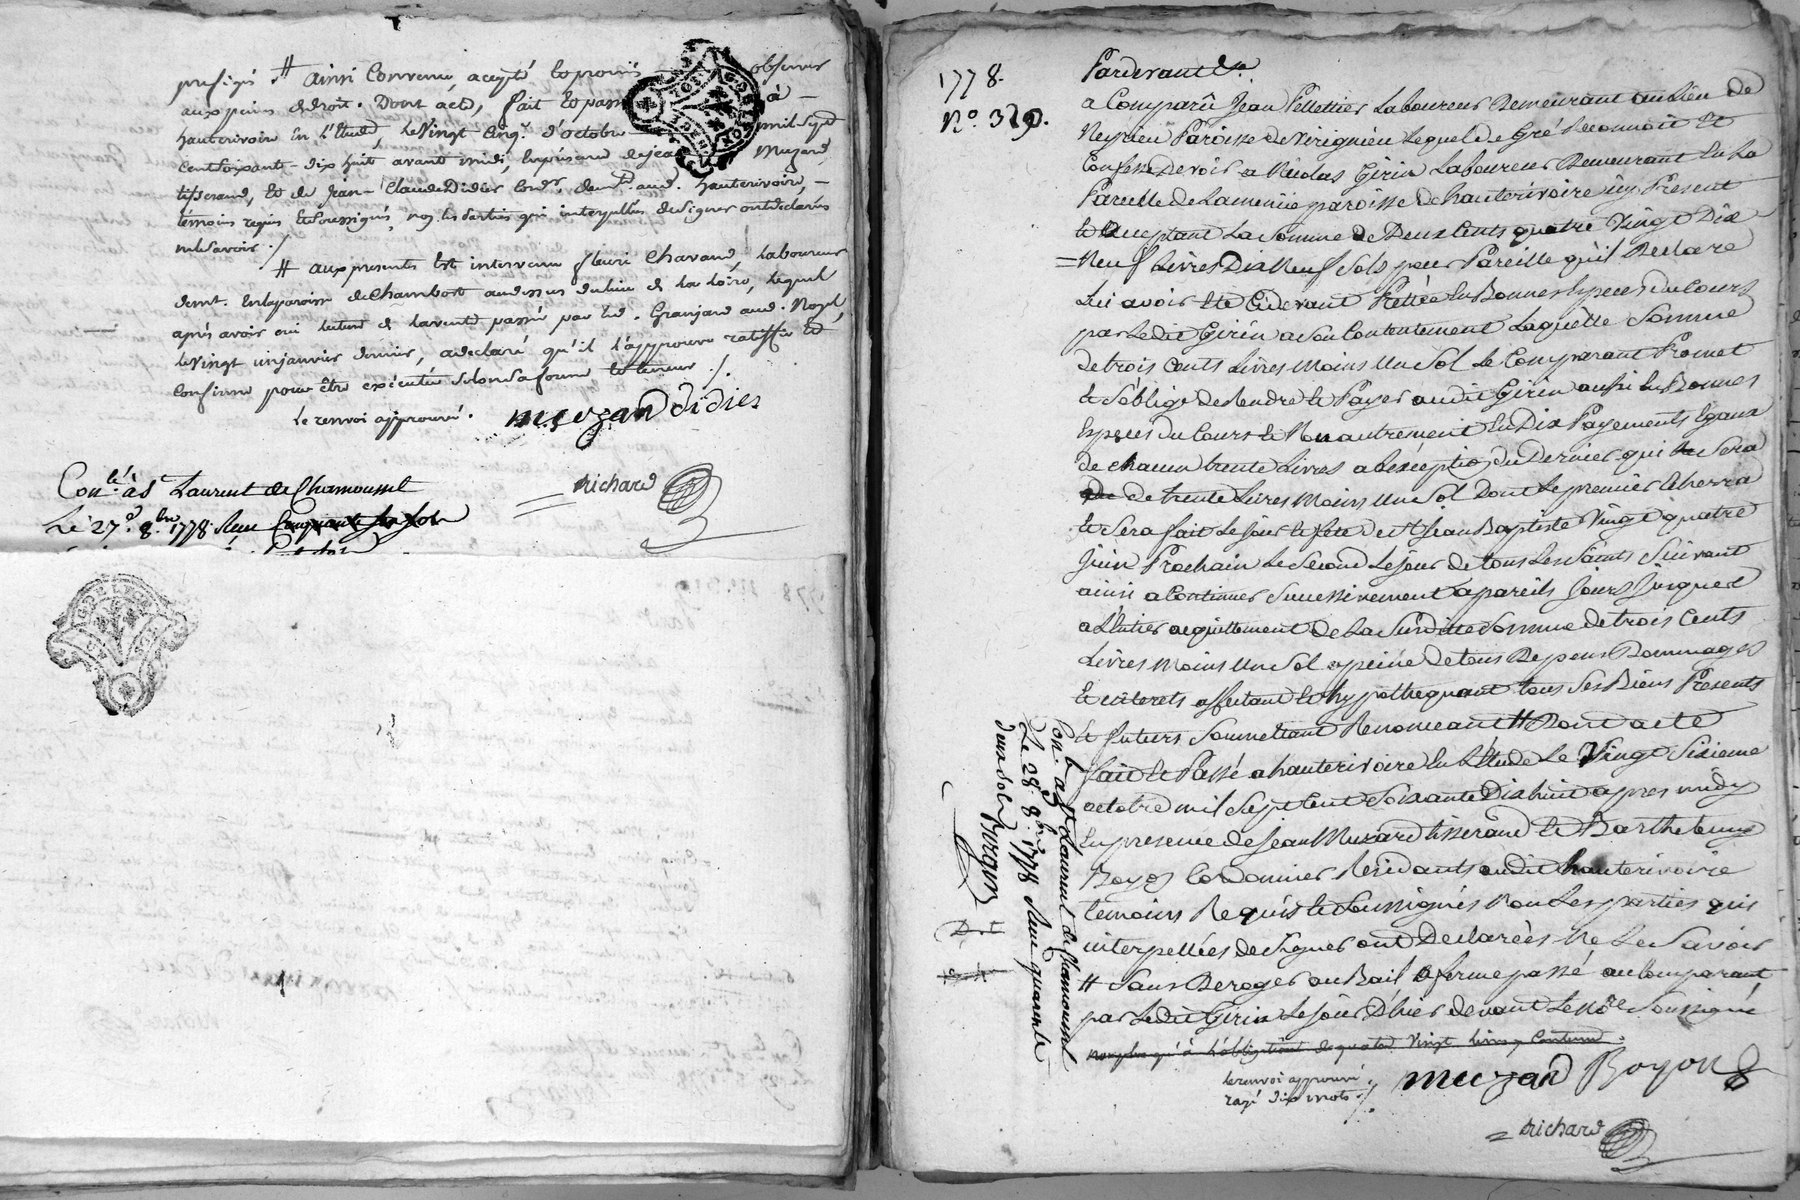 presigé # ainsi Convenu, acepté et promis observer
aux peines de droit. Dont acte, fait et passé à
hauterivoire En l'Etude, le vingt cinq.e d'octobre mil sept
cent soixante-dix huit avant midi, En présence de jean Muzard,
tisserand, et de jean-Claude Didier cord.r, dem.t aud. hauterivoire,
témoins requis et soussignés, non les parties qui interpellées de signer ont déclarés
ne le savoir ./
# aux presentes Est intervenu fleuri Chavand, laboureur
demt. En la paroisse de Chambost audessus du lieu de la Loire, lequel
après avoir oui lecture de la vente passée par led. Granjard aud. Noyel
le vingt un janvier dernier, a declaré qu'il l'approuve ratiffie et
Confirme pour être exécutée selon sa forme et teneur ./.
Le renvoi approuvé.
muzard didier
richard
Con.lé à St Laurent de Chamousset
Le 27.e 8.bre 1778 Reçu
1778.
N.o 319.
Pardevant &.a
a Comparû Jean Pellettier Laboureur Demeurant au Lieu de
Neyrieu Paroisse de Virignieu Lequel de Gré Reconnoit Et
Confesse Devoir a Nicolas Girin Laboureur Demeurant En La
Parcelle de Lamenüe paroisse de hauterivoire icy Present
et Acceptant La Somme de Deux Cents quatre Vingt Dix
Neuf Livres Dix Neuf Sols pour Pareille qu'il Declare
Lui avoir Eté Cidevant Prettée En Bonnes Especes du Cours
par Ledit Girin a Son Contentement Laquelle Somme
de trois Cents Livres moins Un Sol Le Comparant Promet
et S'oblige de Rendre et Payer audit Girin aussi En Bonnes
Especes du Cours et Non autrement En Dix Payements Egaux
de chacun trente Livres a L'exception du Dernier qui ne Sera
que de trente Livres moins Un Sol Dont Le premier Echerra
et Sera fait Le Jour et fete de St Jean Baptiste Vingt quatre
Juin Prochain Le Second Le Jour de tous Les Saints Suivant
ainsi a Continuer Successivement a pareils Jours Jusques
a L'Entier acquittement de La Susditte Somme de trois Cents
Livres moins Un Sol a peine de tous Depens Dommages
et interets affectant et hypothequant tous Ses Biens Presents
et futurs Soumettant Renonceant # Dont acte
fait et Passé a hauterivoire En L'Etude Le Vingt Sixieme
octobre mil Sept Cent Soixante Dix huit apres midy
En presence de Jean Muzard tisserand et Barthelemy
Boyon Cordonnier Residants audit hauterivoire
temoins Requis et Soussignés Non Les parties qui
interpellées de Signer ont Declarées Ne Le Savoir
# Sans Deroger au Bail a ferme passé au Comparant
par Ledit Girin Le Jour D'hier devant Le No.re Soussigné
non plus qu'à l'obligation de quatre Vingt livres y Contenue.
le renvoi approuvé
rayé dix mots ./.
muzard Boyon
richard
Con.lé a St Laurent de Chamousset
Le 28. 8.bre 1778 Reçu quarante
deux sols Burgun